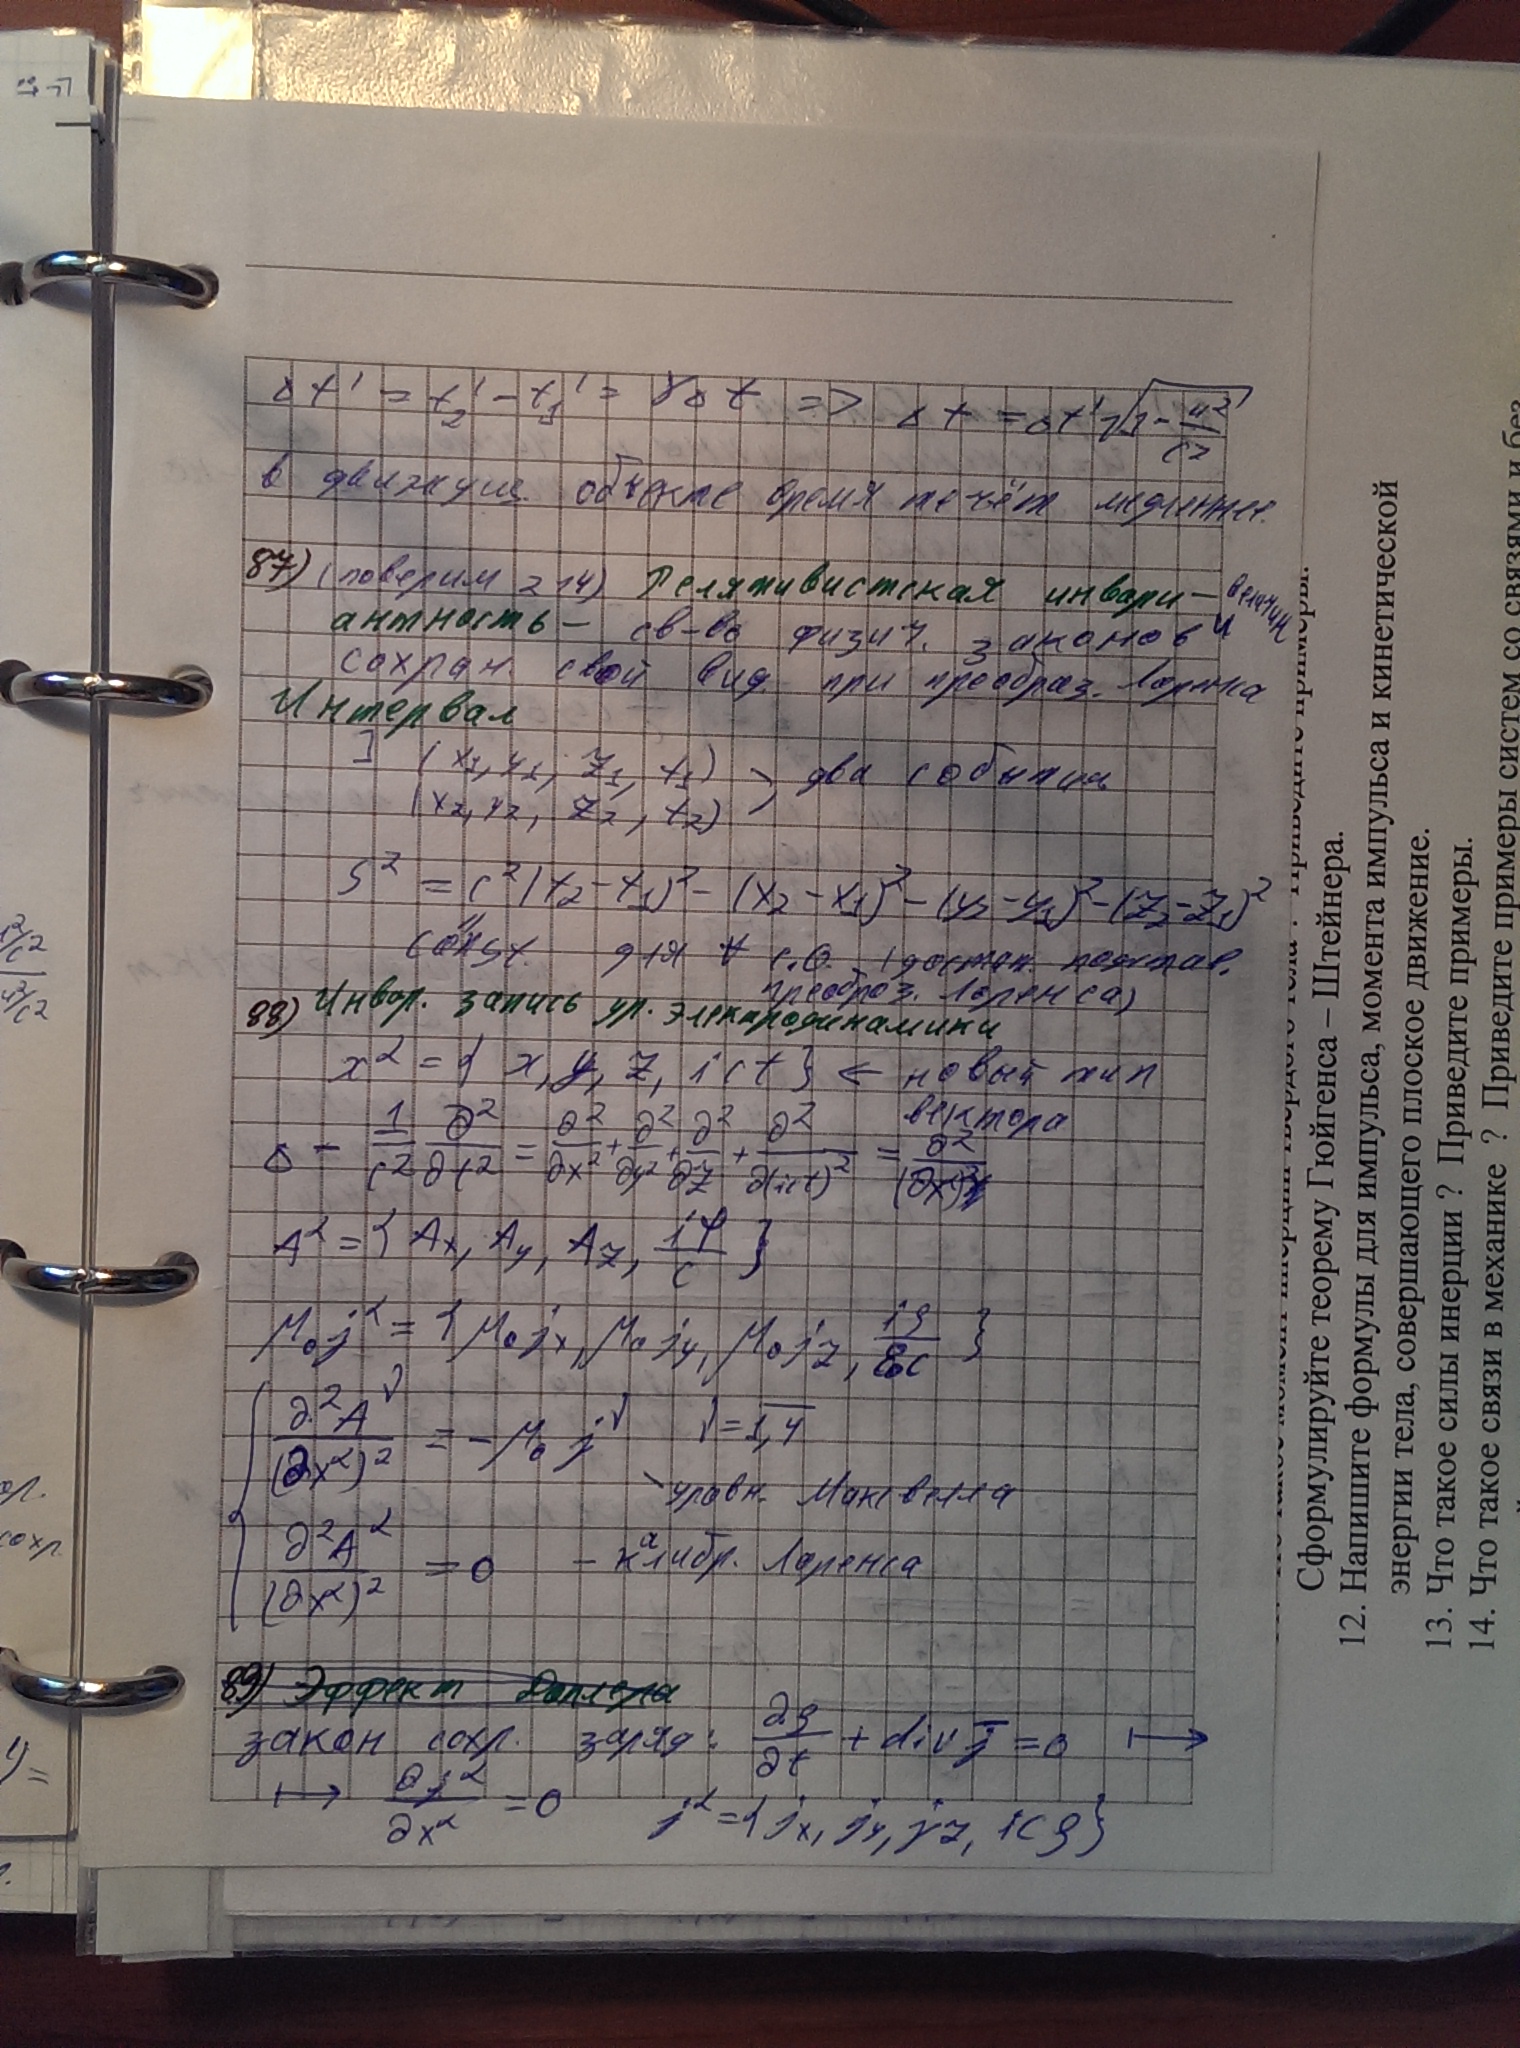 Δt' = t₂' - t₁' = γΔt => Δt = Δt'√(1 - u²/c²)
в движущ. объекте время течёт медленнее.
87) (поверим 214) Релятивистская инвари-
антность - св-во физич. законов и величин
сохран. свой вид при преобраз. Лоренца
Интервал
] (x₁, y₁, z₁, t₁)
(x₂, y₂, z₂, t₂) , два события
S² = c²(t₂ - t₁)² - (x₂ - x₁)² - (y₂ - y₁)² - (z₂ - z₁)²
const. для ∀ с.О. (достат. подстав.
преобраз. Лоренса)
88) Инвар. запись ур. электродинамики
x^α = { x, y, z, ict } ← новый тип
вектора
Δ - 1/c² ∂²/∂t² = ∂²/∂x² + ∂²/∂y² + ∂²/∂z² + ∂²/∂(ict)² = ∂²/(∂x^α)²
A^α = { Ax, Ay, Az, iφ/c }
μ₀j^α = { μ₀jx, μ₀jy, μ₀jz, iρ/ε₀c }
∂²A^ν/(∂x^α)² = - μ₀ j^ν ν = 1,4
уравн. Максвелла
∂²A^α/(∂x^α)² = 0 - калибр. Лоренса
89) Эффект Доплера
закон сохр. заряд: ∂ρ/∂t + div j = 0 ↦
↦ ∂j^α/∂x^α = 0 j^α = { jx, jy, jz, icρ }
Сформулируйте теорему Гюйгенса – Штейнера.
12. Напишите формулы для импульса, момента импульса и кинетической
энергии тела, совершающего плоское движение.
13. Что такое силы инерции ? Приведите примеры.
14. Что такое связи в механике ? Приведите примеры систем со связями и без